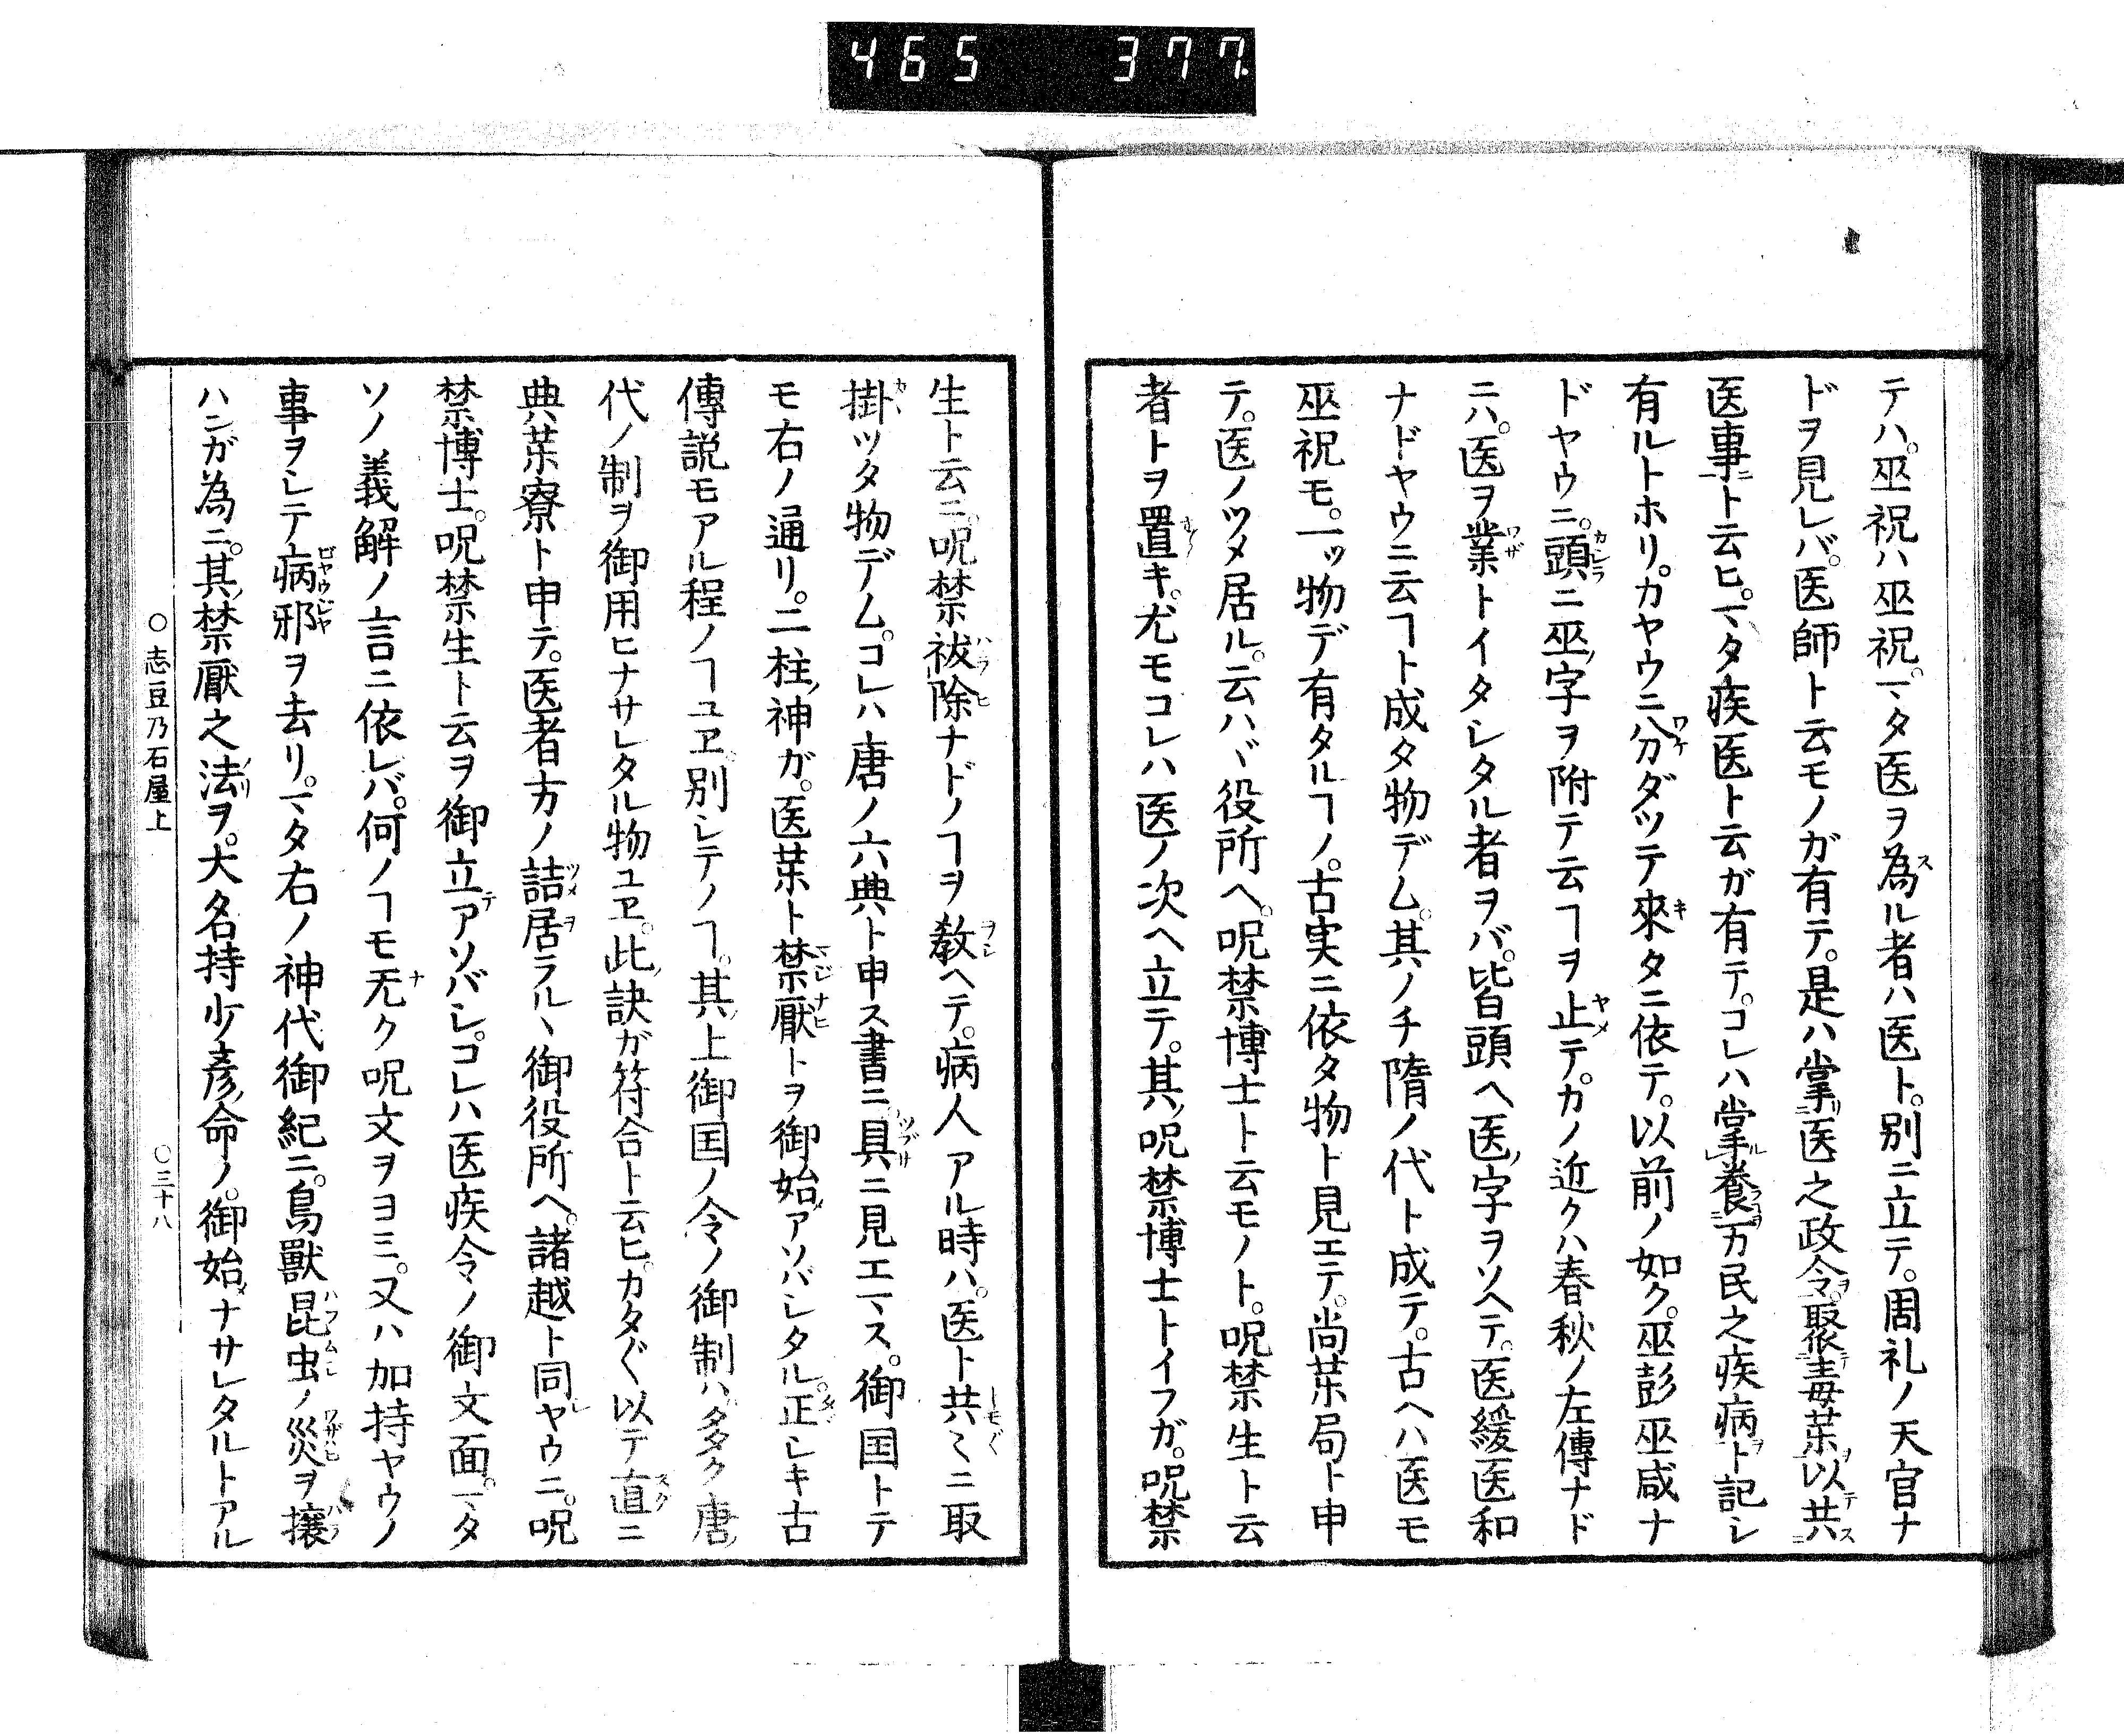 465 377
テハ。巫祝ハ巫祝。マタ医ヲ為ル者ハ医ト。別ニ立テ。周礼ノ天官ナ
ドヲ見レバ。医師ト云モノガ有テ。是ハ掌医之政令。聚毒薬以共
医事ト云ヒ。マタ疾医ト云ガ有テ。コレハ掌養万民之疾病ト記シ
有ルトホリ。カヤウニ分ダツテ來タニ依テ。以前ノ如ク。巫彭巫咸ナ
ドヤウニ。頭ニ巫ノ字ヲ附テ云ヿヲ止テ。カノ近クハ春秋ノ左傳ナド
ニハ。医ヲ業トイタシタル者ヲバ。皆頭ヘ医ノ字ヲソヘテ。医緩医和
ナドヤウニ云ヿト成タ物デム。其ノチ隋ノ代ト成テ。古ヘハ医モ
巫祝モ。一ッ物デ有タルヿノ。古実ニ依タ物ト見エテ。尚薬局ト申
テ。医ノツメ居ル。云ハヾ役所ヘ。呪禁博士ト云モノト。呪禁生ト云
者トヲ置キ。尤モコレハ医ノ次ヘ立テ。其ノ呪禁博士トイフガ。呪禁
生ト云ニ。呪禁祓除ナドノヿヲ教ヘテ。病人アル時ハ。医ト共〻ニ取
掛ツタ物デム。コレハ唐ノ六典ト申ス書ニ具ニ見エマス。御国トテ
モ右ノ通リ。二柱ノ神ガ。医薬ト禁厭トヲ御始メアソバシタル。正シキ古
傳説モアル程ノヿユヱ。別シテノヿ。其ノ上御国ノ令ノ御制ハ。多ク唐ノ
代ノ制ヲ御用ヒナサレタル物ユヱ。此ノ訣ガ符合ト云ヒ。カタ〴〵以テ直ニ
典薬寮ト申テ。医者方ノ詰居ラルヽ御役所ヘ。諸越ト同シヤウニ。呪
禁博士。呪禁生ト云ヲ御立テアソバシ。コレハ医疾令ノ御文面。マタ
ソノ義解ノ言ニ依レバ。何ノヿモ无ク呪文ヲヨミ。又ハ加持ヤウノ
事ヲシテ病邪ヲ去リ。マタ右ノ神代御紀ニ。鳥獣昆虫ノ災ヲ攘
ハンガ為ニ。其ノ禁厭之法ヲ。大名持少彦ノ命ノ。御始メナサレタルトアル
○志豆乃石屋上 ○三十八